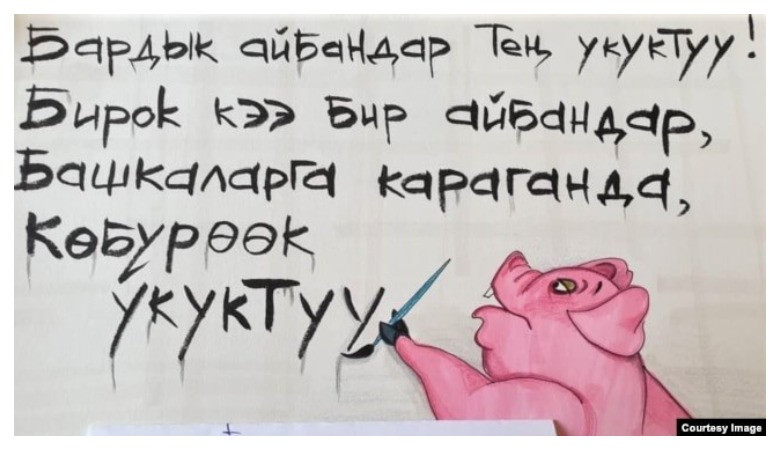 Бардык айбандар Тең укуктуу!
Бирок кээ бир айбандар,
Башкаларга караганда,
Көбүрөөк
укуктуу
Courtesy Image